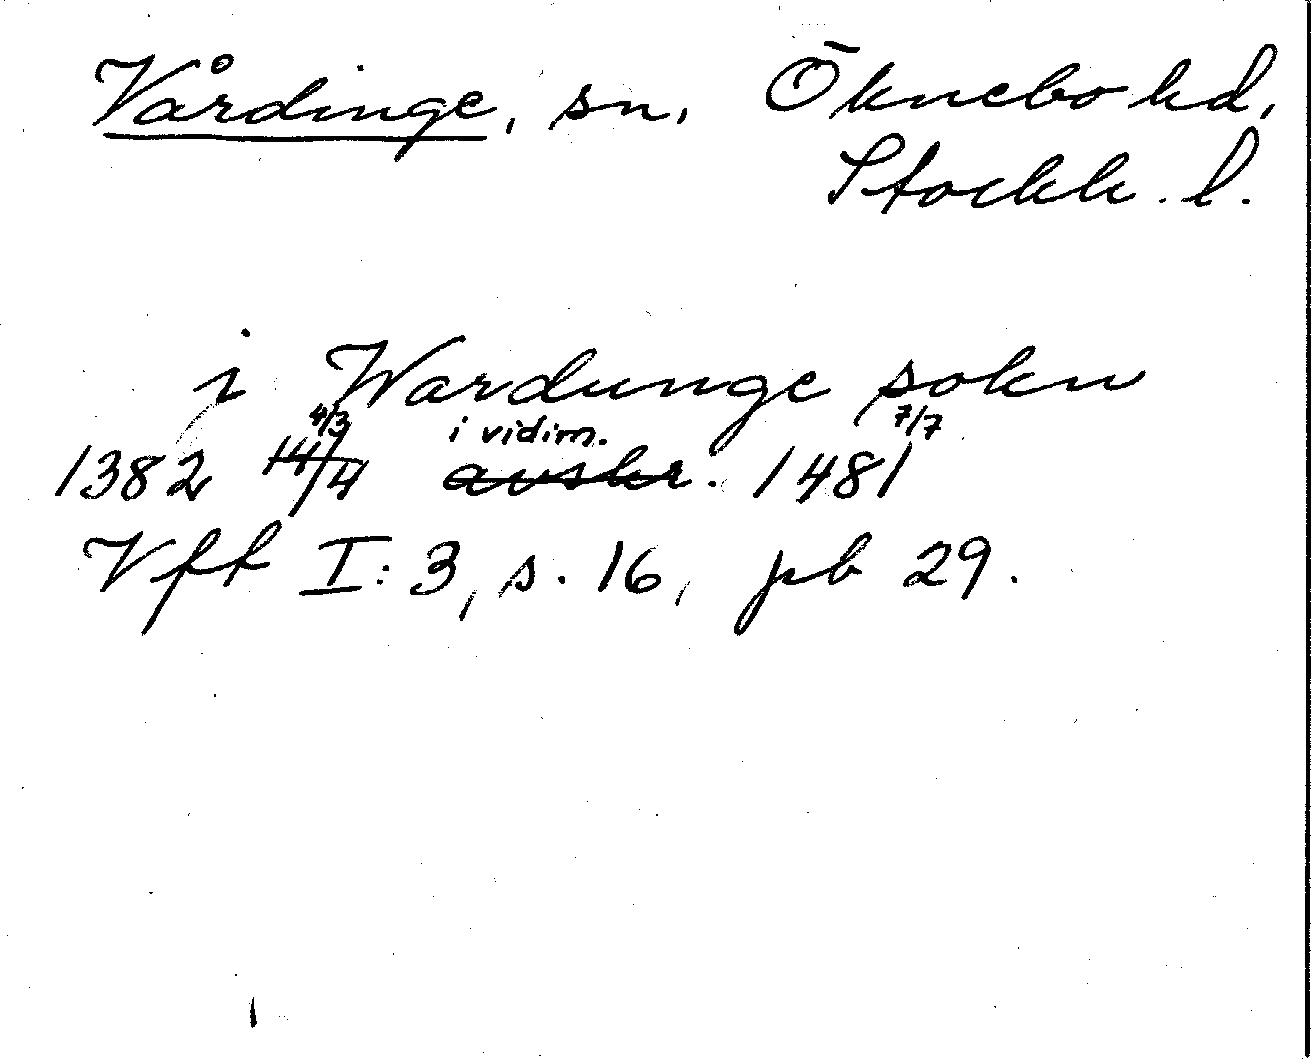 Vårdinge, sn, Öknebo hd,
Stockh. l.
i Wardunge sokn
4/3 i vidim. 7/7
1382 14/4 avskr. 1481
Vff I:3, s. 16, pb 29.